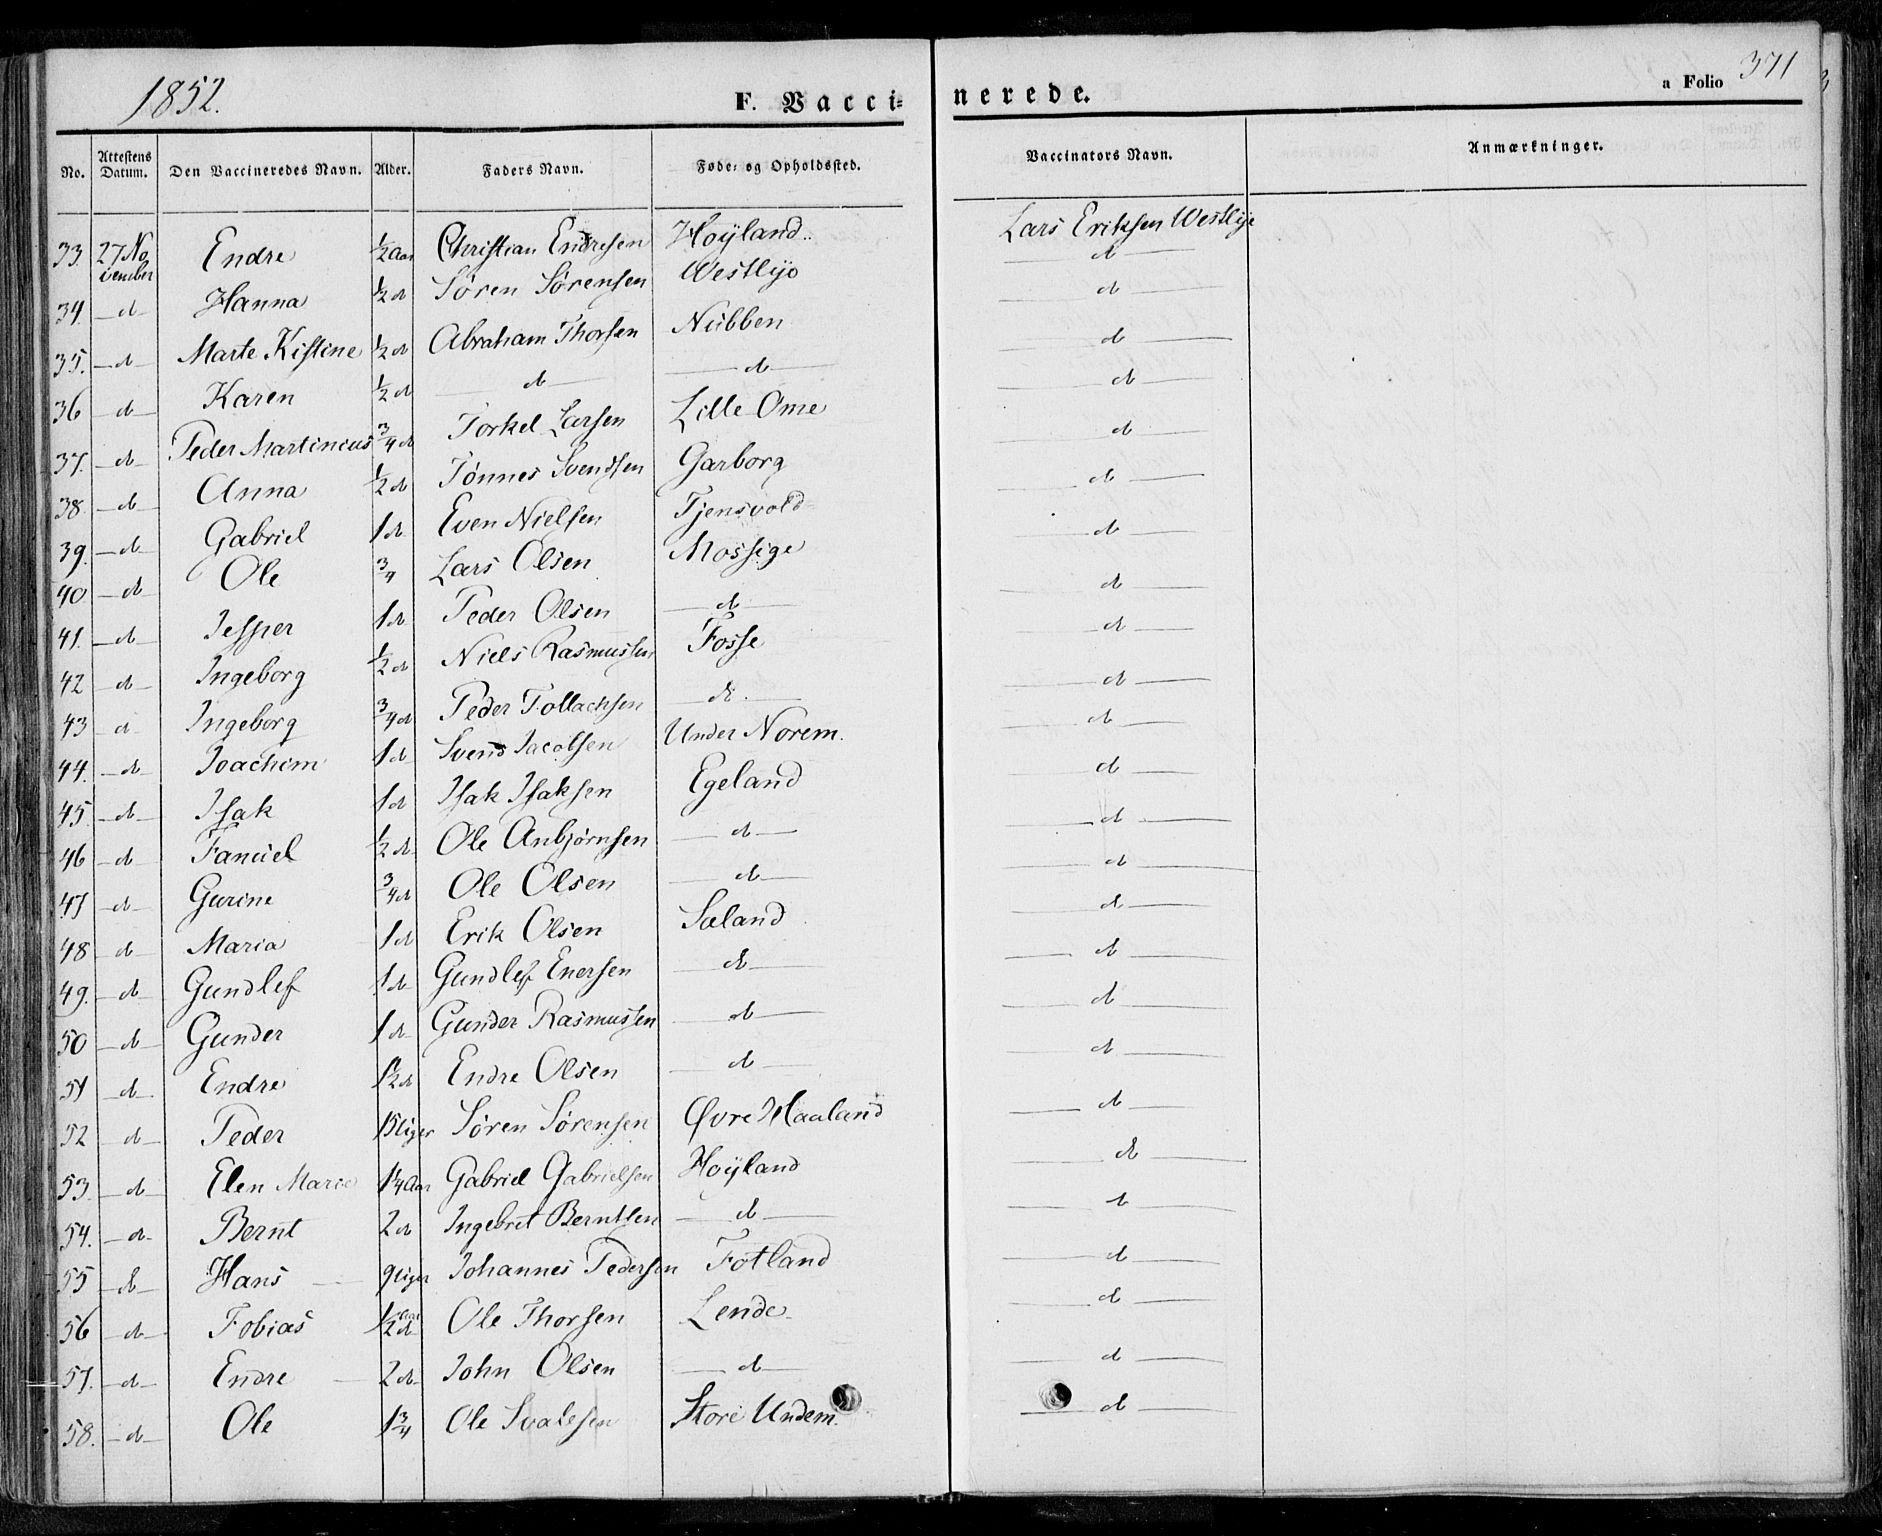 1852. F. Vaccinerede. a Folio 371
No. Attestens Datum. Den Vaccineredes Navn. Alder. Faders Navn. Føde- og Opholdssted. Vaccinators Navn. Anmærkninger.
33. 27 November Endre 1/2 Aar Christian Endresen Hoÿland.. Lars Eriksen Westlÿe
34 — d — Hanna 1/2 d Sören Sörensen Westlÿe — d —
35. — d — Marte Kistine 1/2 d Abraham Thorsen Nübben — d —
36 — d — Karen 1/2 d — d — — d — — d —
37. — d — Peder Martinius 3/4 d Torkel Larsen Lille Ome — d —
38. — d — Anna 1/2 d Tønnes Svendsen Garborg — d —
39. — d — Gabriel 1 d Even Nielsen Tjensvold — d —
40. — d — Ole 3/4 Lars Olsen Mossige — d —
41. — d — Jesper 1 d Peder Olsen — d — — d —
42 — d — Ingeborg 1/2 d Niels Rasmussen Fosse — d —
43 d Ingeborg 3/4 d Peder Tollachsen — d — — d —
44. — d — Joachim 1 d Svend Jacobsen Under Norem. — d —
45. — d — Isak 1 d Isak Isaksen Egeland — d —
46 — d — Fanüel 1/2 d Ole Anbjørnsen — d — — d —
47 — d — Gurine 3/4 d Ole Olsen — d — — d —
48 — d — Maria 1 d Erik Olsen Sæland — d —
49. — d — Gundlef 1 d Gundlef Enersen — d — — d —
50 — d — Gunder 1 d Gunder Rasmussen — d — — d —
51 — d — Endre 1 1/2 d Endre Olsen — d — — d —
52 — d — Peder 15 Uger Sören Sörensen Øvre Haaland — d —
53 — d — Elen Marie 1 1/4 Aar Gabriel Gabrielsen Hoÿland — d —
54. — d — Bernt 2 d Ingebret Berntsen — d — — d —
55 — d — Hans 9 Uger Johannes Pedersen Fotland — d —
56 — d — Tobias 1/2 Aar d Ole Thorsen Lende — d —
57. — d — Endre 2 d John Olsen — d — — d —
58. — d — Ole 1 3/4 Ole Svalesen Store Undem. — d —